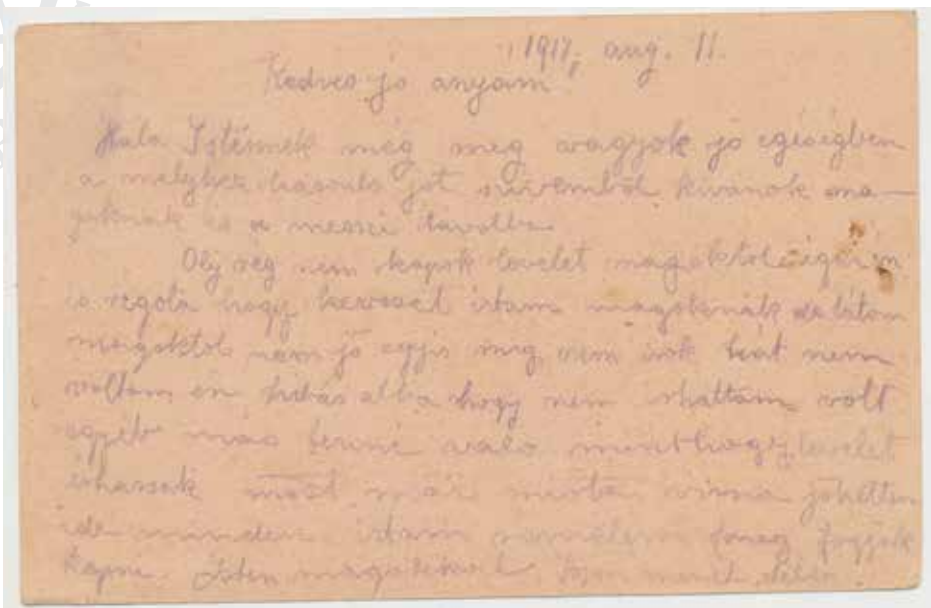 1917, aug. 11.
Kedves jó anyám!
Hála Istennek még meg vagyok jó egéségben
a melyhez hásonló jót szivemböl kivánok ma-
goknak is a messzi távolba
Olj rég nem kapok levelet magoktol igaz én
is régolá hogy kevesset irtam magoknák de látom
magoktol nem jö egyis mig nem irok hát nem
voltam én hibás abba hogy nem irhattam volt
egyéb más tenni való mint hogy levelet
irhassak most már mióta vissza jöhettem
ide minden irtam remélem meg fogják
kapni. Isten magokkal